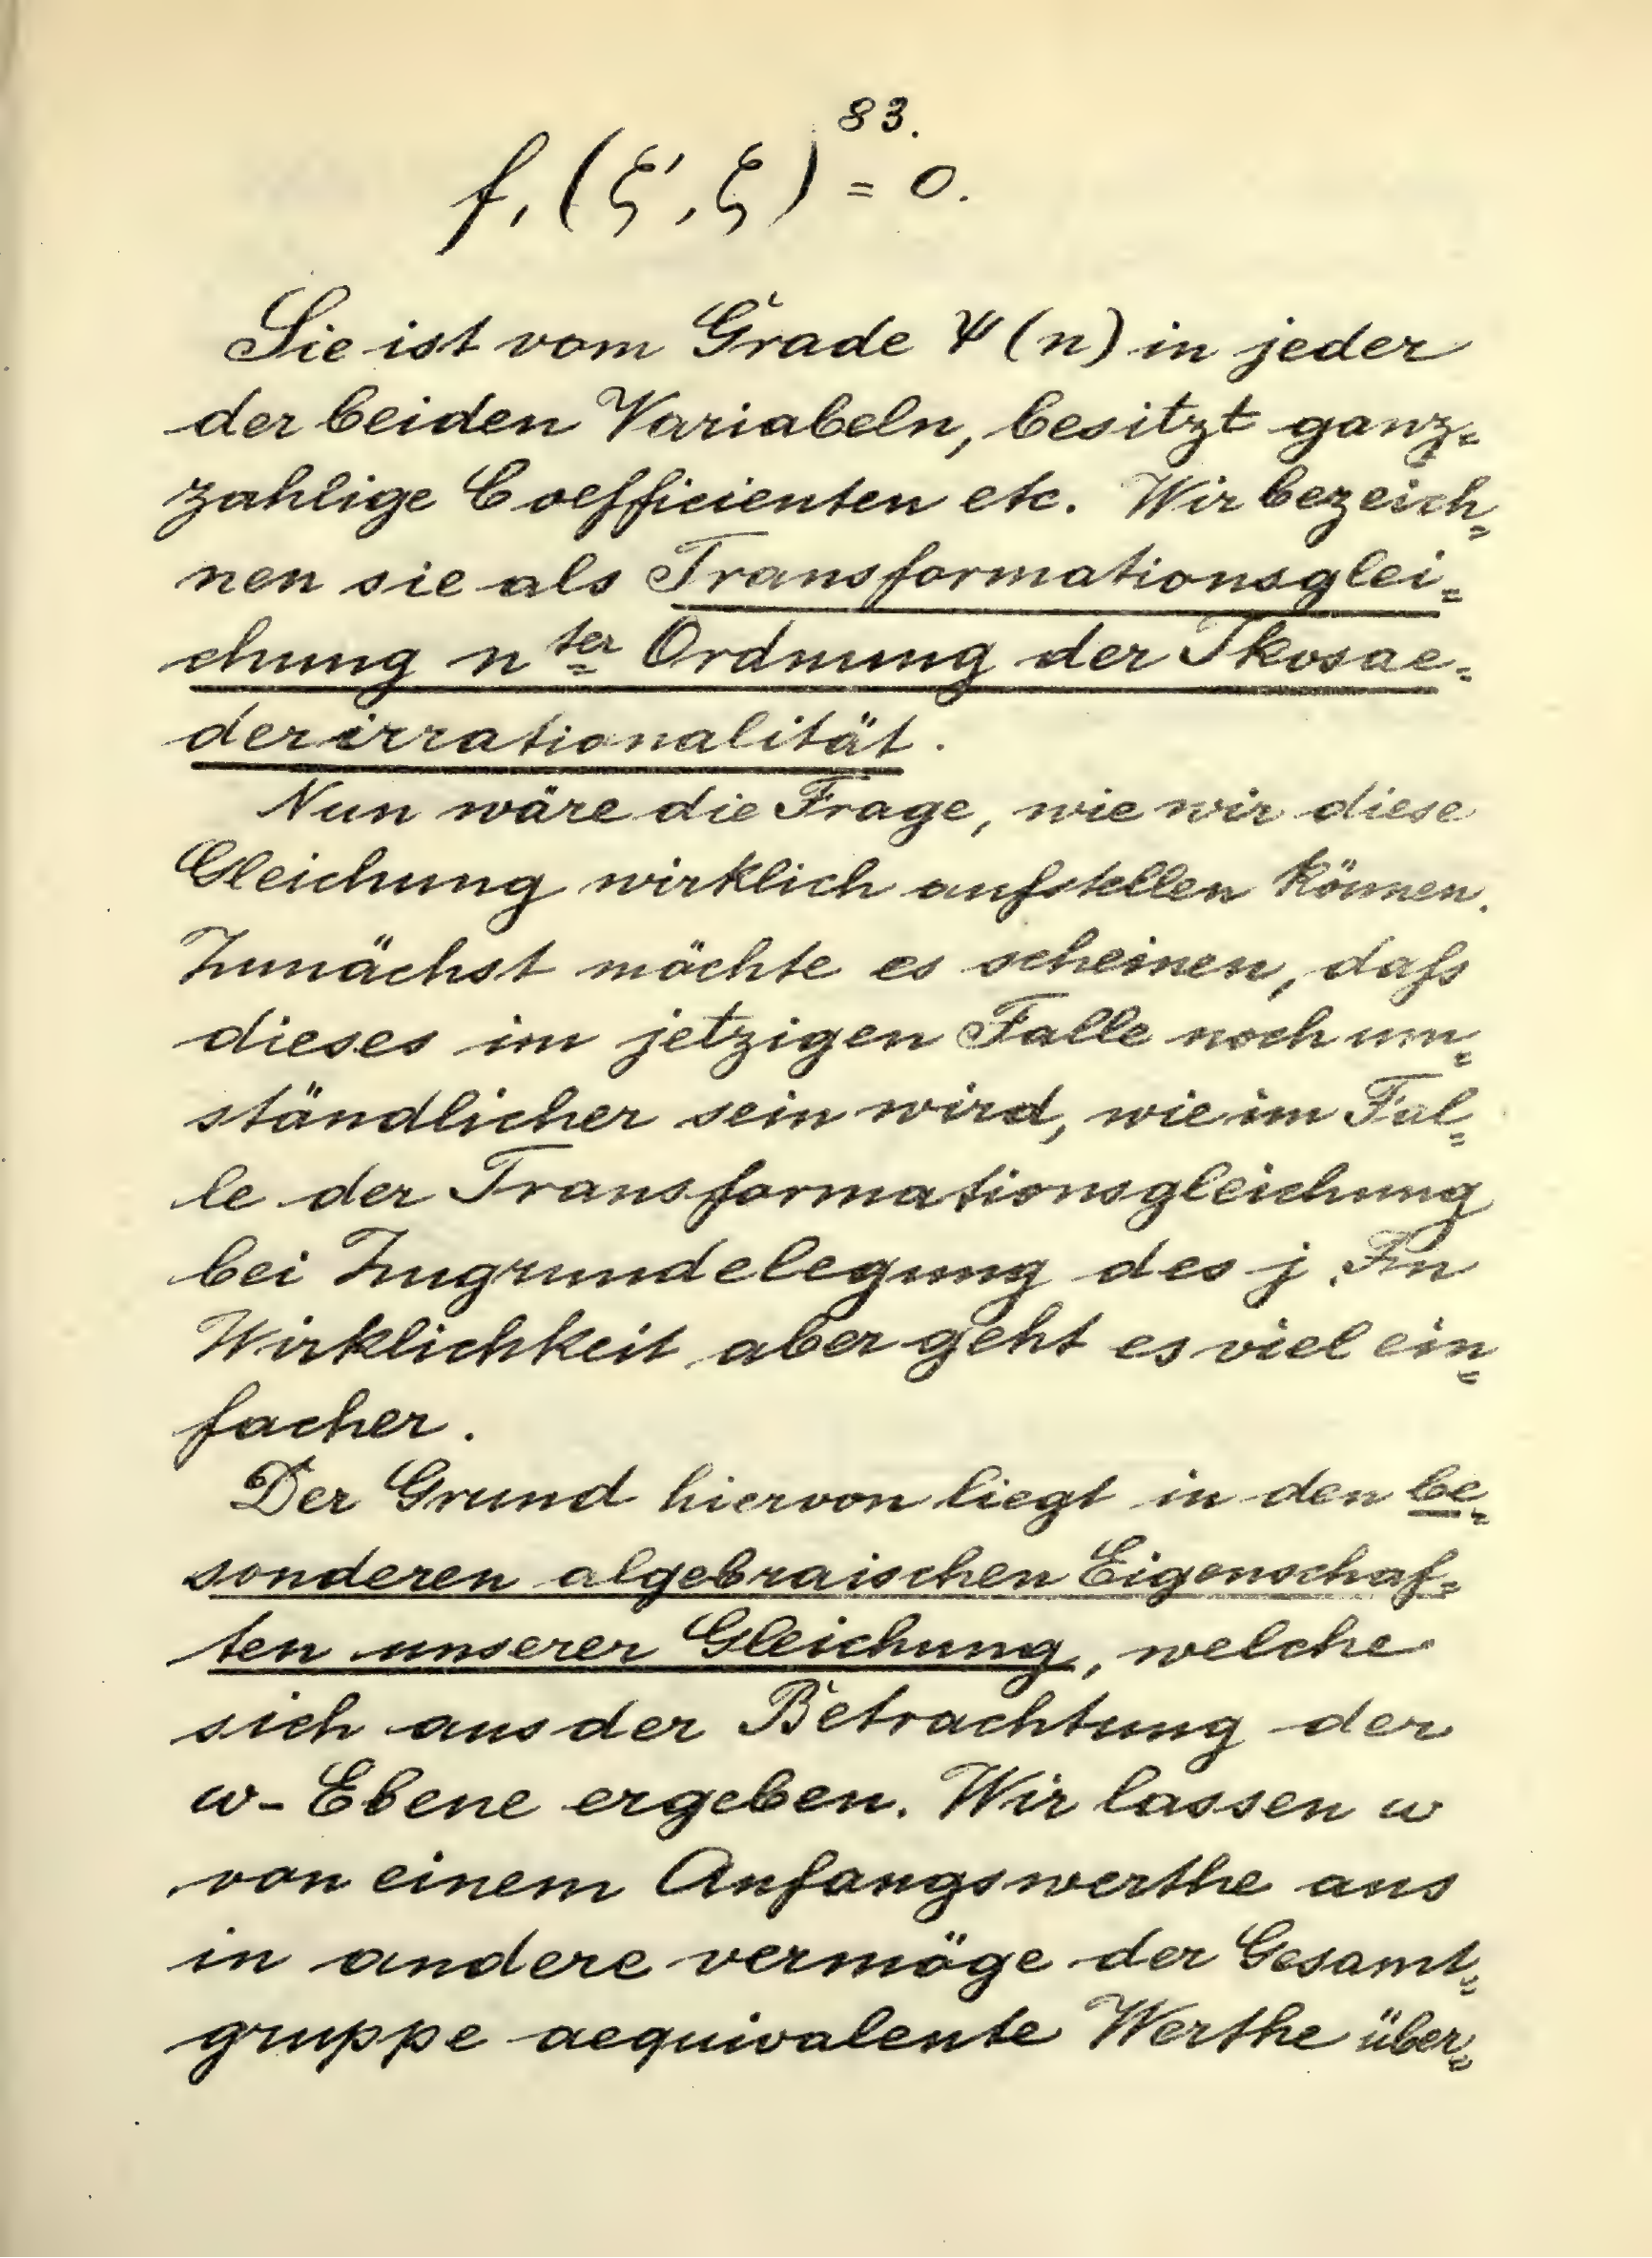 83.
f₁(ξ', ξ) = 0.
Sie ist vom Grade ψ(n) in jeder
der beiden Variabeln, besitzt ganz=
zahlige Coefficienten etc. Wir bezeich=
nen sie als Transformationsglei=
chung nter Ordnung der Ikosae=
derirrationalität.
Nun wäre die Frage, wie wir diese
Gleichung wirklich aufstellen können.
Zunächst möchte es scheinen, daſs
dieses im jetzigen Falle noch um=
ständlicher sein wird, wie im Fal=
le der Transformationsgleichung
bei Zugrundelegung des j. In
Wirklichkeit aber geht es viel ein=
facher.
Der Grund hiervon liegt in den be=
sonderen algebraischen Eigenschaf=
ten unserer Gleichung, welche
sich aus der Betrachtung der
ω-Ebene ergeben. Wir lassen ω
von einem Anfangswerthe aus
in andere vermöge der Gesamt=
gruppe aequivalente Werthe über=